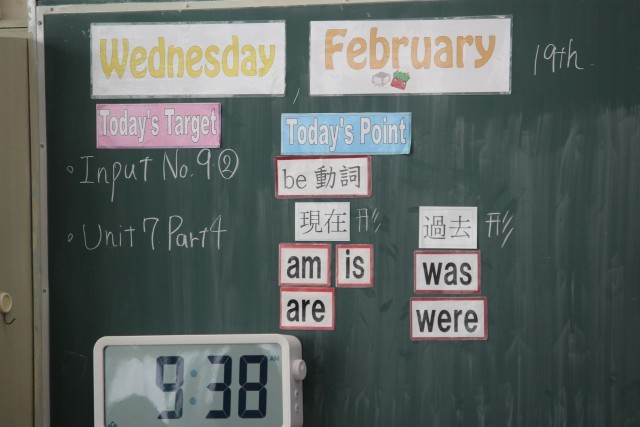 Wednesday February 19th.
Today's Target
Today's Point
。Input No.9②
be 動詞
。Unit 7 Part 4
現在形
過去形
am is
was
are
were
9:38 AM